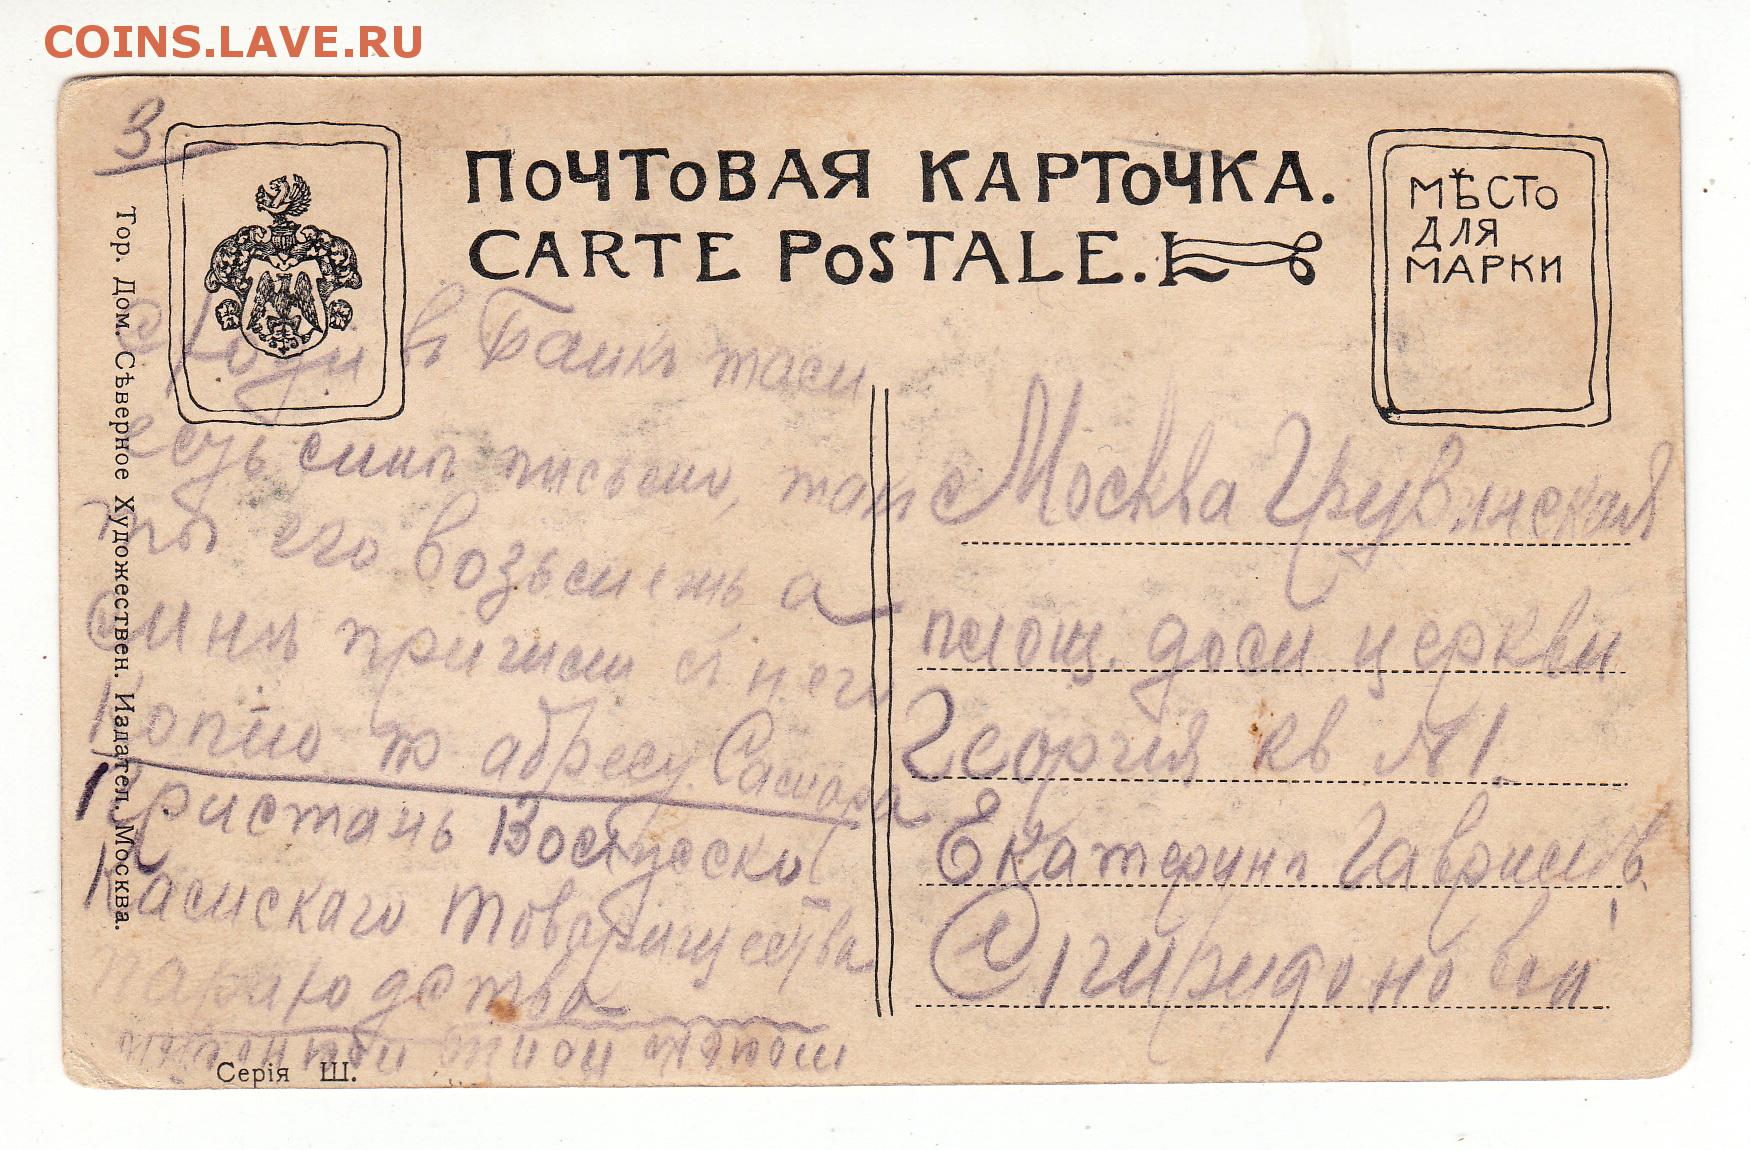 COINS.LAVE.RU
3
ПОЧТОВАЯ КАРТОЧКА.
CARTE POSTALE.
МѢСТО
ДЛЯ
МАРКИ
Тор. Дом. Сѣверное Художествен. Издател. Москва.
Сходи въ Банкъ там
есть мнѣ письмо, там
ты его возьмешь а
мнѣ пришли с него
Копію по адресу. Самара
Пристань Восту
Камскаго товарищества
пароходства
Москва Грузинская
площ. дом церкви
Георгия кв №1.
Екатеринѣ Гаврилов.
Спиридоновой
Серія Ш.